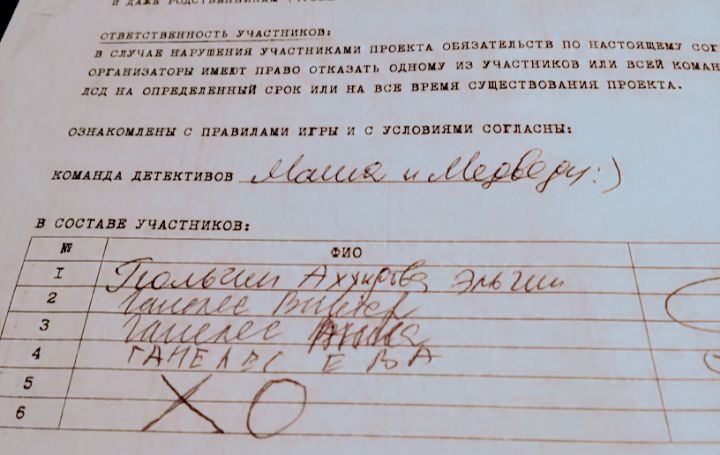 И ДАЖЕ РОДСТВЕННИКАМ
ОТВЕТСТВЕННОСТЬ УЧАСТНИКОВ:
В СЛУЧАЕ НАРУШЕНИЯ УЧАСТНИКАМИ ПРОЕКТА ОБЯЗАТЕЛЬСТВ ПО НАСТОЯЩЕМУ СОГ
ОРГАНИЗАТОРЫ ИМЕЮТ ПРАВО ОТКАЗАТЬ ОДНОМУ ИЗ УЧАСТНИКОВ ИЛИ ВСЕЙ КОМАН
ЛСД НА ОПРЕДЕЛЕННЫЙ СРОК ИЛИ НА ВСЕ ВРЕМЯ СУЩЕСТВОВАНИЯ ПРОЕКТА.
ОЗНАКОМЛЕНЫ С ПРАВИЛАМИ ИГРЫ И С УСЛОВИЯМИ СОГЛАСНЫ:
КОМАНДА ДЕТЕКТИВОВ Маша и Медведи :)
В СОСТАВЕ УЧАСТНИКОВ:
№ ФИО
I Эльчин
2 Ганелес Виктор
3 Ганелес
4 ГАНЕЛЕС ЕВА
5
6